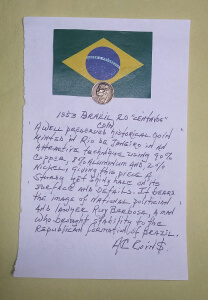 1953 BRAZIL 20 "CENTAVO"
COIN
A WELL PRESERVED HISTORICAL COIN
MINTED IN RIO DE JANEIRO IN AN
ATTRACTIVE TECHNIQUE USING 90%
COPPER, 8% ALUMINUM AND 2%
NICKEL, GIVING THIS PIECE A
STURDY YET SHINY HAZE ON ITS
SURFACE AND DETAILS. IT BEARS
THE IMAGE OF NATIONAL POLITICIAN
AND LAWYER RUY BARBOSA, A MAN
WHO BROUGHT STABILITY TO THE
REPUBLICAN FORMATION OF BRAZIL.
COIN$